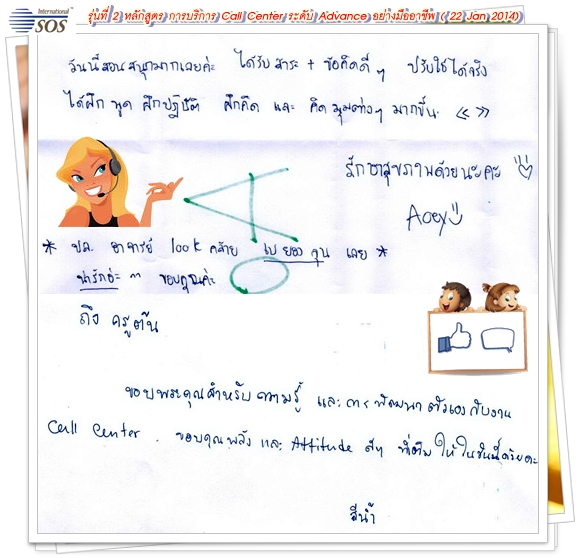 International
SOS
รุ่นที่ 2 หลักสูตร การบริการ Call Center ระดับ Advance อย่างมืออาชีพ ( 22 Jan 2014)
วันนี้สอนสนุกมากเลยค่ะ ได้รับสาระ + ข้อคิดดีๆ ปรับใช้ได้จริง
ได้ฝึก พูด ฝึกปฏิบัติ ฝึกคิด และ คิดมุมต่างๆ มากขึ้น
รักษาสุขภาพด้วยนะคะ
Aoey
* ปล. อาจารย์ look คล้าย เบ ยอง จุน เลย *
น่ารักอ่ะ ๓ ขอบคุณค่ะ
ถึง ครูต้น
ขอบพระคุณสำหรับความรู้ และการพัฒนาตัวเองกับงาน
Call Center . ขอบคุณพลัง และ Attitude ดีๆ ที่เติมให้ในวันนี้ด้วยค่ะ
มีน้ำ